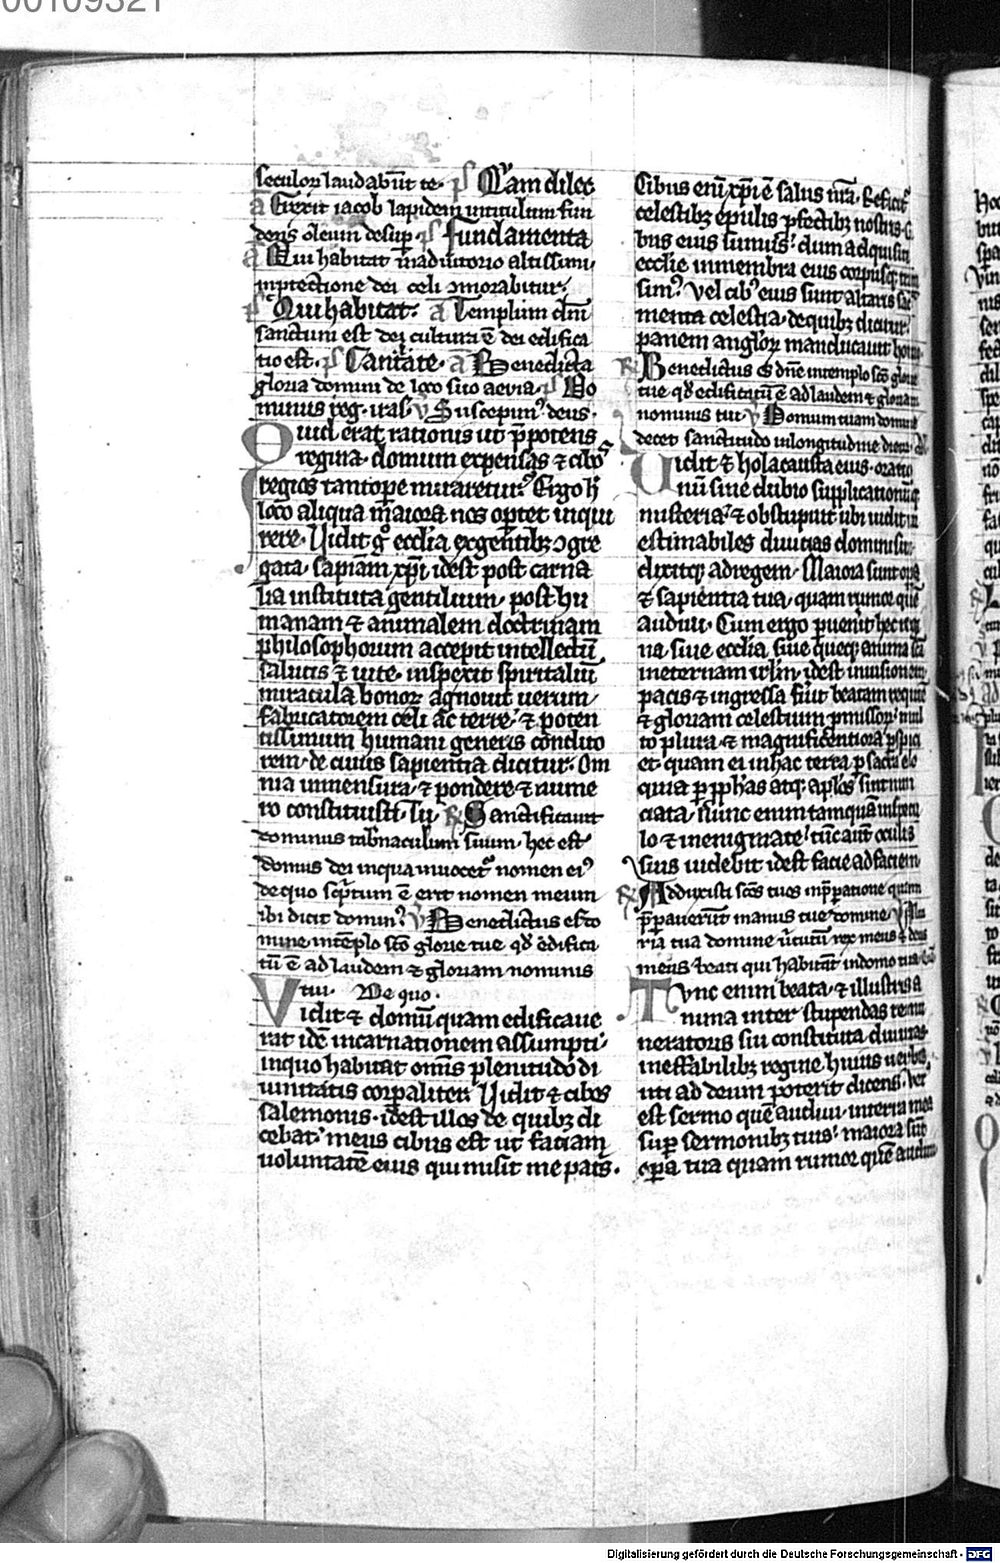 00109321
seculoꝝ laudabūt te· p̄s Q̄am dilec
a Erexit iacob lapidem intitulum fun
dens oleum desuꝑ· p̄s Fundamenta
a Qui habitat in adiutorio altissimi·
inprotectione dei celi ꝯmorabitur·
p̄s Qui habitat· a Templum dn̄i
sanctum est dei cultura ē dei edifica
tio est· p̄s Cantate· a Benedicta
gloria domini de loco suo aevia· p̄s Do
minus reg· iras· v̄ Suscepimꝰ deus·
Quid erat rationis ut p̄potens
regina· domum expensas ⁊ cibos
regios tantoꝑe miraretur· Ergo h̄
loco aliqua maiora nos oꝑtet inqui
rere· Vidit gͦ ecclīa exgentibꝫ ꝯgre
gata· sapiam xp̄i· idest post carna
lia instituta gentilium· post hu
manam ⁊ animalem doctrinam
philosophorum accepit intellectū
salutis ⁊ uite· inspexit spiritaliū
miracula bonoꝝ agnouit uerum·
fabricatorem celi ac terre· ⁊ poten
tissimum humani generis condito
rem· de cuius sapientia dicitur· Om
nia inmensura· ⁊ pondere ⁊ nume
ro constituisti· Tu· R̄ Sanctificauit
dominus tabnaculum suum· hec est
domus dei inqua inuocet̄ nomen eiꝰ
dequo sc̄ptum ē erit nomen meum
ibi dicit dominꝰ v̄ Benedictus esto
mine intēplo sc̄o glorie tue qd̄ edifica
tū ē ad laudem ⁊ gloriam nominis
tui· De quo·
Vidit ⁊ domū quam edificaue
rat idē incarnationem assumpti·
inquo habitat omīs plenitudo di
uinitatis corꝑaliter· Vidit ⁊ cibos
salemonis· idest illos de quibꝫ di
cebat· meus cibus est ut faciam
uoluntatē eius qui misit me patris·
Cibus enī xp̄i ē salus nr̄a· Reficitꝰ
celestibꝫ epulis ꝓfectibꝫ nostris·
bus eius sumus· dum adquisiti
ecclie inmembra eius
simꝰ· Vel cibꝰ eius sunt altaris
menta celestia· dequibꝫ dicitur·
panem angloꝝ manducauit homo·
R̄ Benedictus es dn̄e intemplo sc̄o glorie
tue qd̄ edificatū ē ad laudem ⁊ gloriam
nominis tui· v̄ Domum tuam domine
decet sanctitudo inlongitudine dierum·
Vidit ⁊ holacausta eius· oratio
nū siue dubio supplicationūq
misteria· ⁊ obstupuit ubi uidit in
estimabiles diuitias domini sui·
dixitqꝫ adregem· Maiora sunt opa
⁊ sapientia tua· quam rumor quē
audiui· Cum ergo ꝑuenit hec
na· siue ecclīa, siue queqꝫ anima
ineternam irlm· idest inuisionem
pacis ⁊ ingressa fūit beatam requiē
⁊ gloriam celestium ꝓmissoꝝ mul
to plura· ⁊ magnificentiora
et· quam ei inhac terra
quia ꝑ ꝓphas atqꝫ apłos sint nun
ciata· Nunc enim tamquā inspecu
lo ⁊ inenigmate· tūc aūt oculis
suis uidebit idest facie adfaciem
R̄ Adduxisti sc̄os tuos inp̄paratione quam
p̄parauerūt manus tue domine· v̄ Alta
ria tua domine ūtutū rex meus ⁊ deus
meus beati qui habitāt indomo tua
Tunc enim beata· ⁊ illustris a
nima inter stupendas
neratoris sui constituta diuitias
ineffabilibꝫ regine huius uerbis·
uti ad deum poterit dicens· Ver
est sermo quē audiui· interra mea
suꝑ sermonibꝫ tuis· maiora sūt
opera tua quam rumor quē audiui
Digitalisierung gefördert durch die Deutsche Forschungsgemeinschaft - DFG